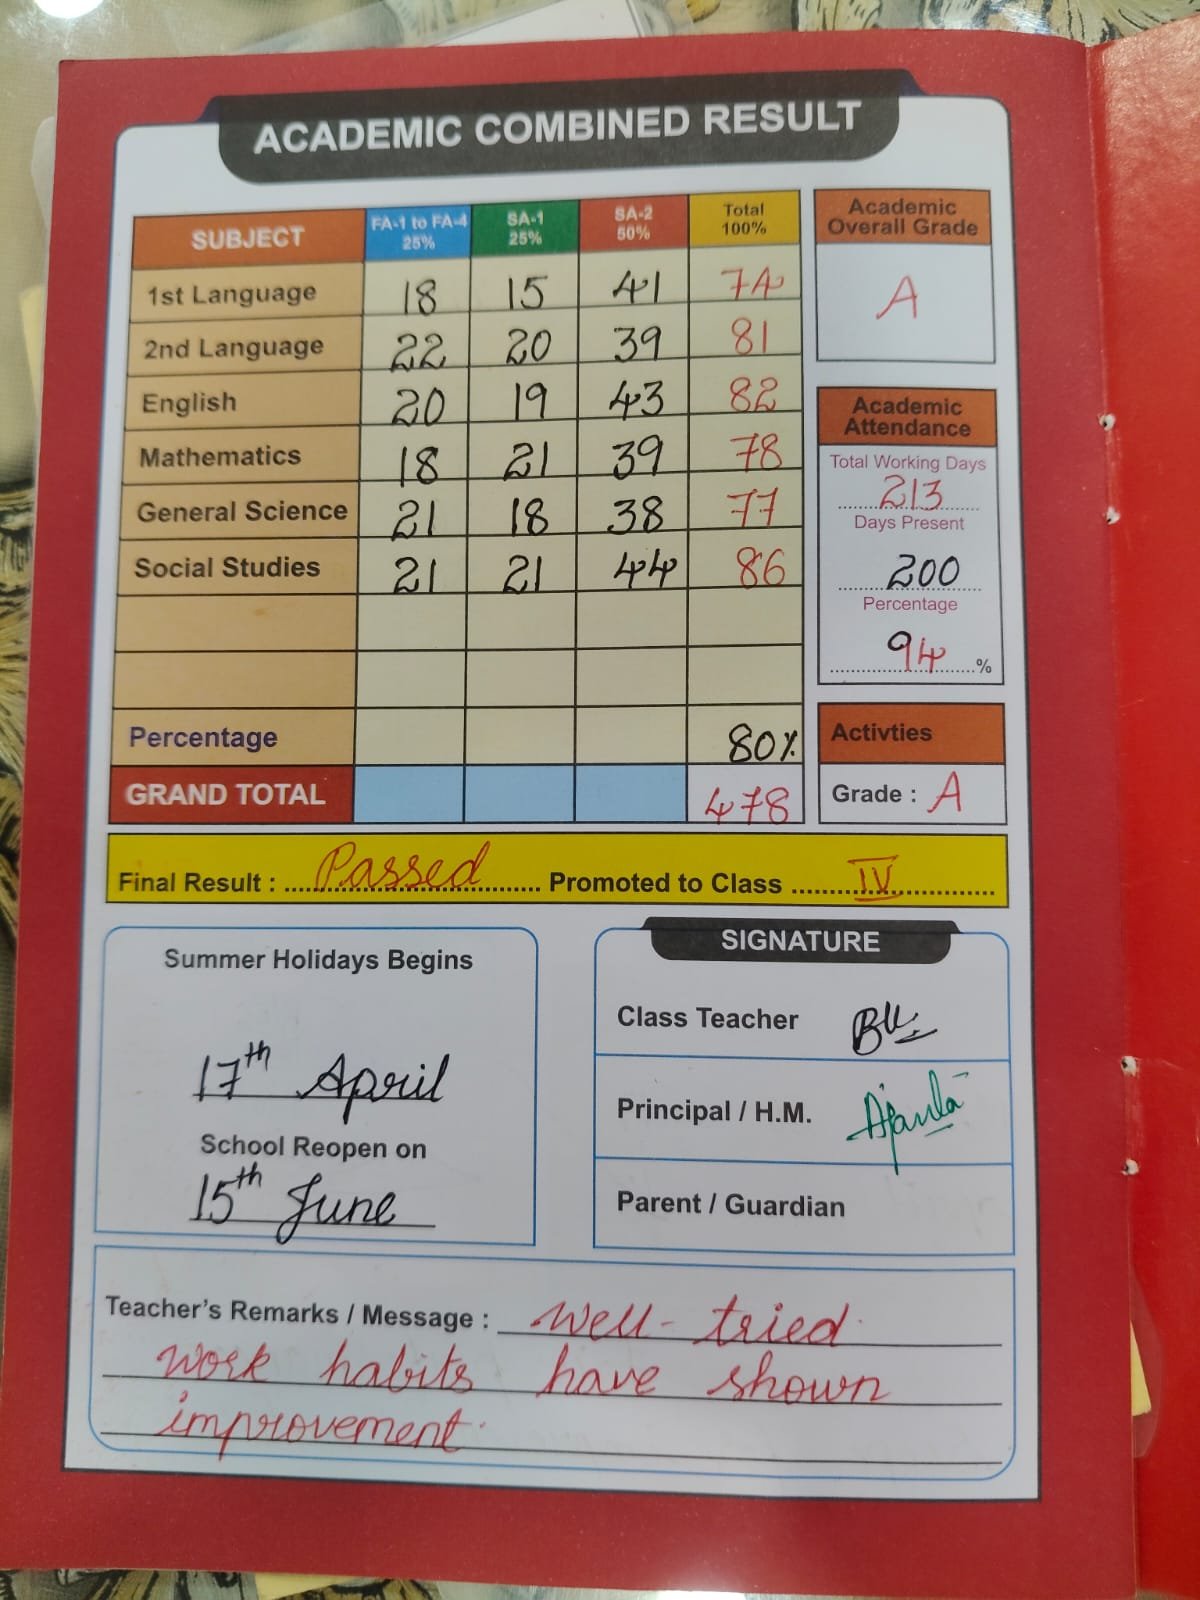 ACADEMIC COMBINED RESULT
SUBJECT FA-1 to FA-4 25% SA-1 25% SA-2 50% Total 100%
1st Language 18 15 41 74
2nd Language 22 20 39 81
English 20 19 43 82
Mathematics 18 21 39 78
General Science 21 18 38 77
Social Studies 21 21 44 86
Percentage 80%
GRAND TOTAL 478
Academic
Overall Grade
A
Academic
Attendance
Total Working Days
213
Days Present
200
Percentage
94 %
Activties
Grade : A
Final Result : Passed Promoted to Class IV
Summer Holidays Begins
17th April
School Reopen on
15th June
SIGNATURE
Class Teacher
Principal / H.M.
Parent / Guardian
Teacher's Remarks / Message : Well-tried.
Work habits have shown
improvement.